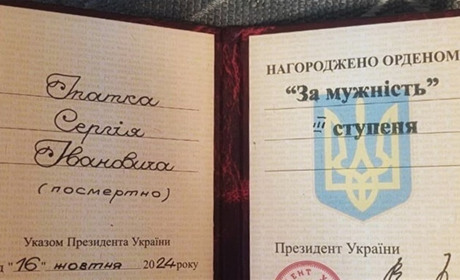 Іпатка
Сергія
Івановича
(посмертно)
Указом Президента України
"16" жовтня 2024 року
НАГОРОДЖЕНО ОРДЕНОМ
“За мужність”
III ступеня
Президент України